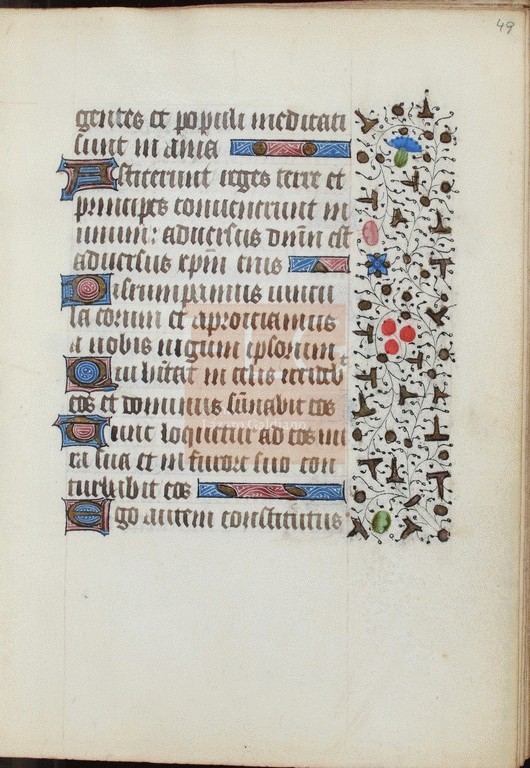 49
gentes et populi meditati
sunt in ania
Astiterunt reges terre et
principes convenerunt in
unum: adversus dnm et
adversus xpm eius
Dirumpamus vincu
la eorum et aproiciamus
a nobis iugum ipsorum
Qui hitat in celis irrideb
eos et dominus subsannabit eos
Tunc loquetur ad eos in i
ra sua et in furore suo con
turbabit eos
Ego autem constitutus
Lázaro Galdiano